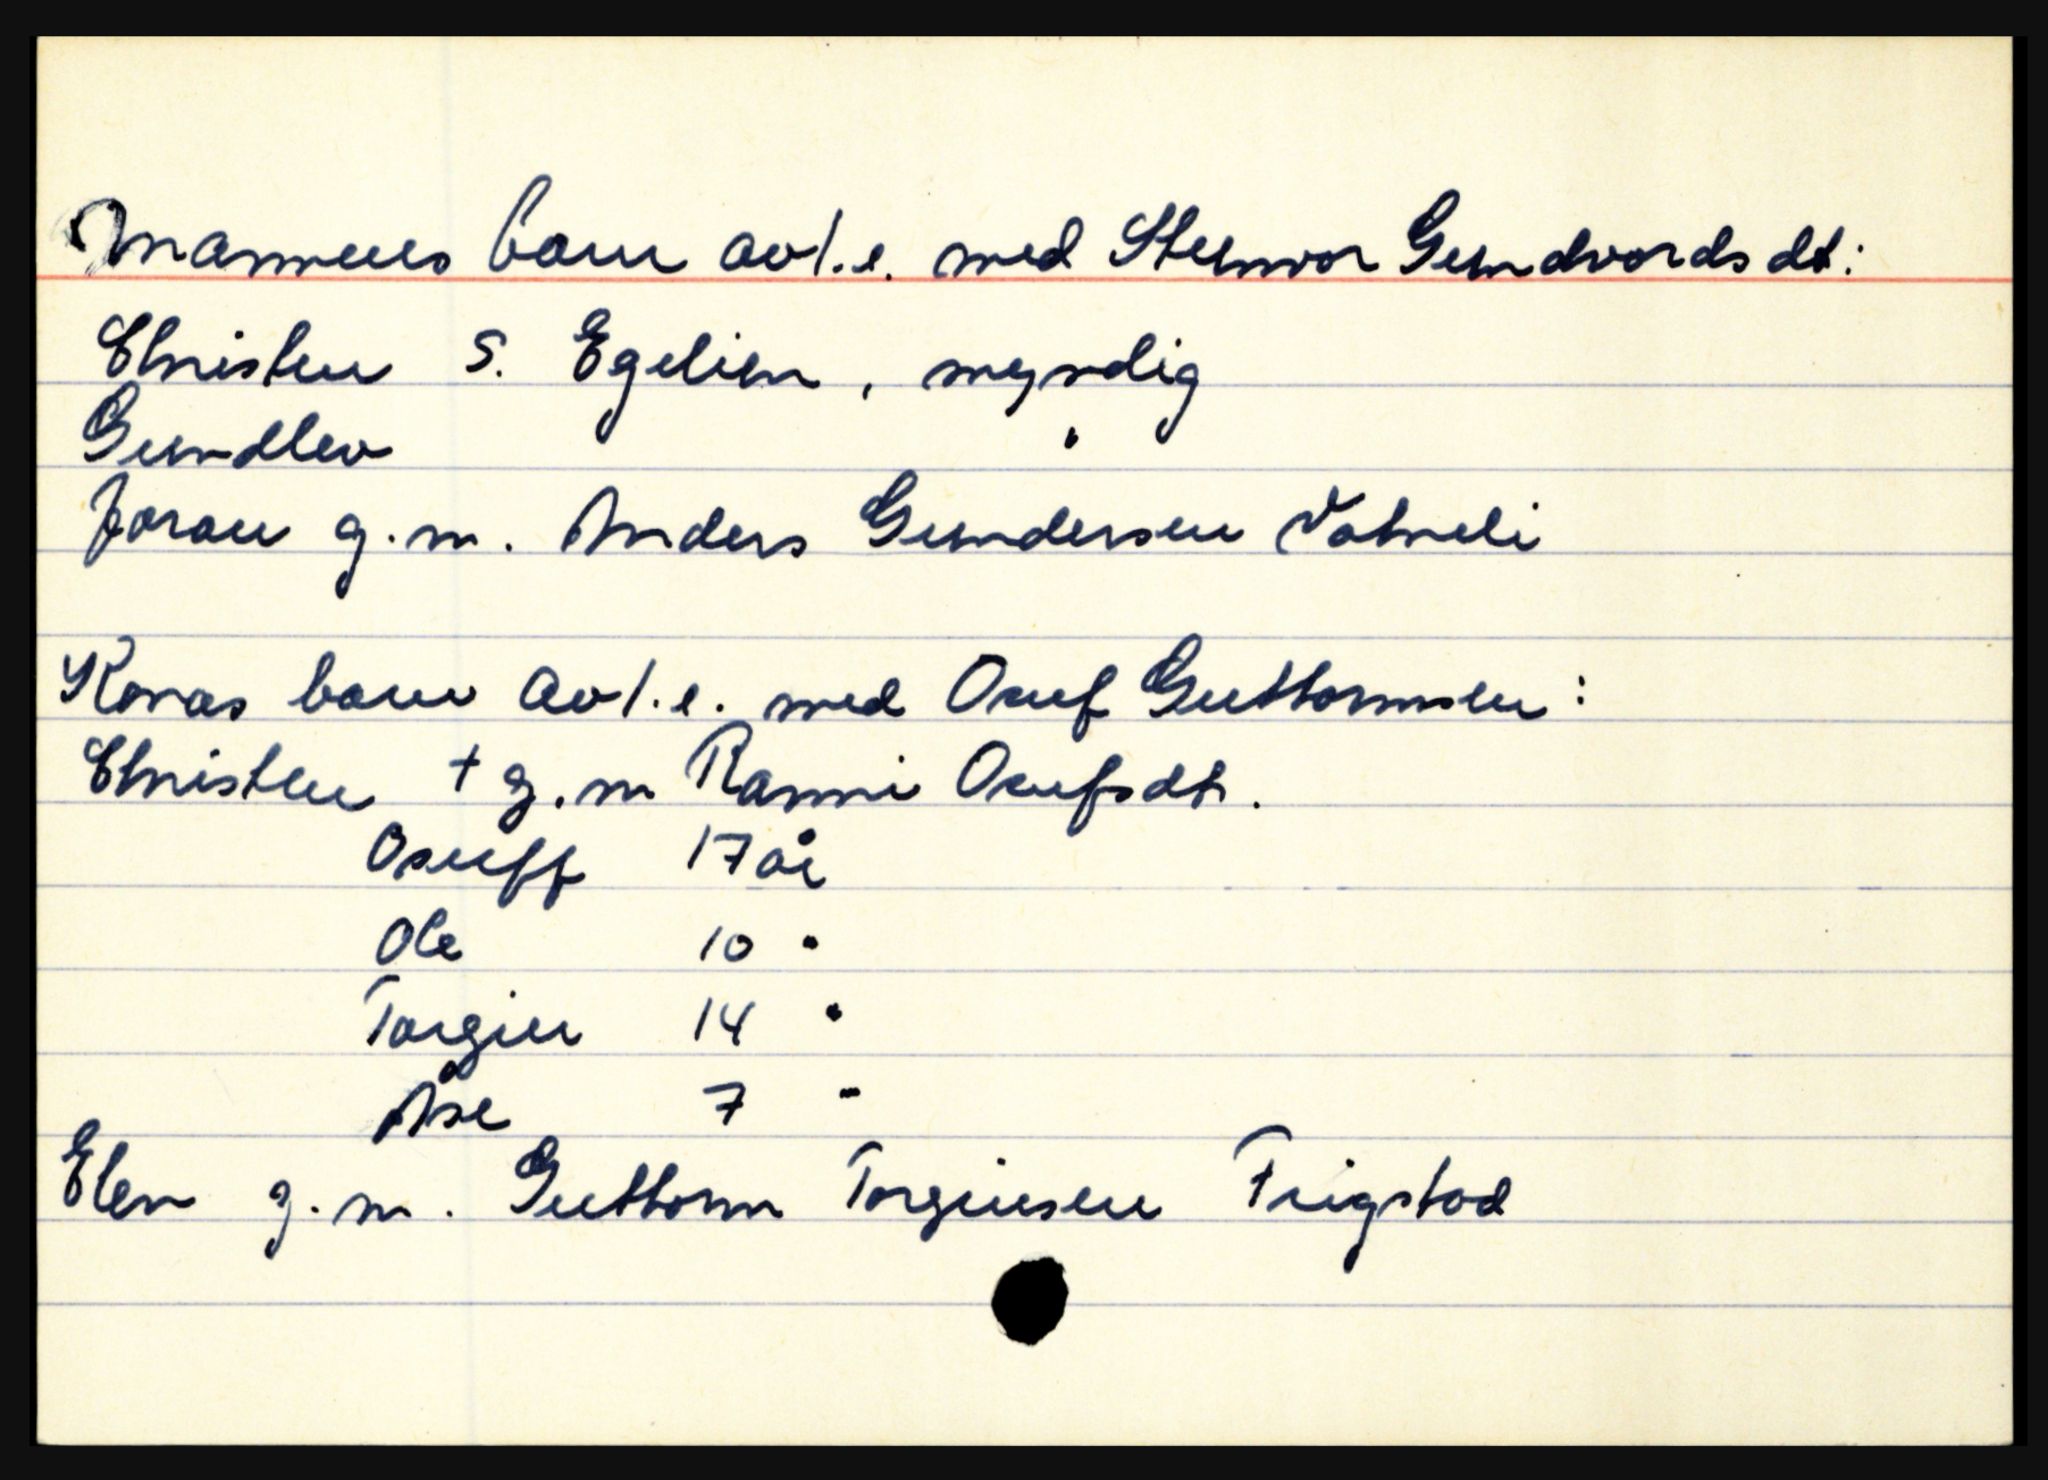 Mannens barn avl.e. med Stenvor Gundvordsdt:
Christen S. Egelien, myndig
Gundlev "
Joran g.m. Anders Gundersen Vatneli
Konas barn avl.e. med Osuf Guttormsen:
Christen + g.m Ranni Osufsdt.
Osuff 17 år
Ole 10 "
Torgier 14 "
Åse 7 "
Elen g.m. Guttorm Torgiusen Frigstad